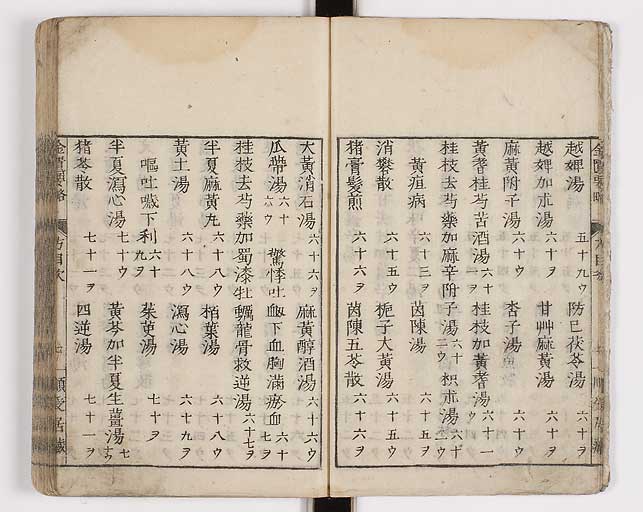 越婢湯 五十九ウ 防已茯苓湯 六十ヲ
越婢加朮湯 六十ヲ 甘艸麻黃湯 六十ヲ
麻黃附子湯 六十ウ 杏子湯 六十ウ
黃耆桂芍苦酒湯 六十ウ 桂枝加黃耆湯 六十一ウ
桂枝去芍藥加麻辛附子湯 六十二ウ 枳朮湯 六十二ウ
黃疸病 六十三ヲ 茵陳湯 六十五ヲ
消礬散 六十五ウ 梔子大黃湯 六十五ウ
猪膏髮煎 六十六ヲ 茵陳五苓散 六十六ヲ
金匱要略 方目次
大黃消石湯 六十六ヲ 麻黃醇酒湯 六十六ウ
瓜帶湯 六十六ウ 驚悸吐衂下血胸滿瘀血 六十七ヲ
桂枝去芍藥加蜀漆牡蠣龍骨救逆湯 六十七ヲ
半夏麻黃丸 六十八ウ 栢葉湯 六十八ウ
黃土湯 六十八ウ 瀉心湯 六十九ヲ
嘔吐噦下利 六十九ヲ 茱萸湯 七十ヲ
半夏瀉心湯 七十ウ 黃芩加半夏生薑湯 七十ウ
猪苓散 七十一ヲ 四逆湯 七十一ヲ
金匱要略 方目次 七 順受居藏